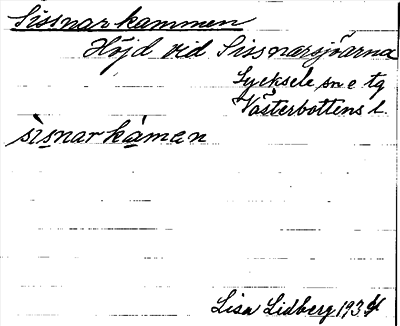 Sissnarkammen
Höjd vid Sissnarsjöarna
Lycksele sn o tg
Västerbottens l.
sìsnarkàmen
Lisa Lidberg 1934